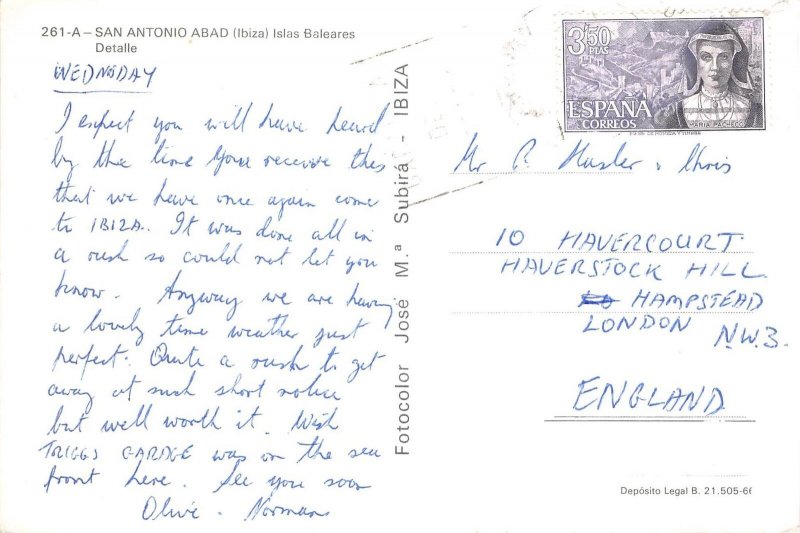 261-A – SAN ANTONIO ABAD (Ibiza) Islas Baleares
Detalle
WEDNSDAY
I expect you will have heard
by the time you receive this
that we have once again come
to IBIZA. It was done all in
a rush so could not let you
know. Anyway we are having
a lovely time weather just
perfect. Quite a rush to get
away at such short notice
but well worth it. Wish
TRIGGS GARAGE was on the sea
front here. See you soon
Olive. Norman
Fotocolor José M.ª Subirá - IBIZA
3'50
PTAS
ESPAÑA
CORREOS
MARIA PACHECO
Mr P. & Chris
10 HAVERCOURT.
HAVERSTOCK HILL
HAMPSTEAD
LONDON N.W.3.
ENGLAND
Depósito Legal B. 21.505-66